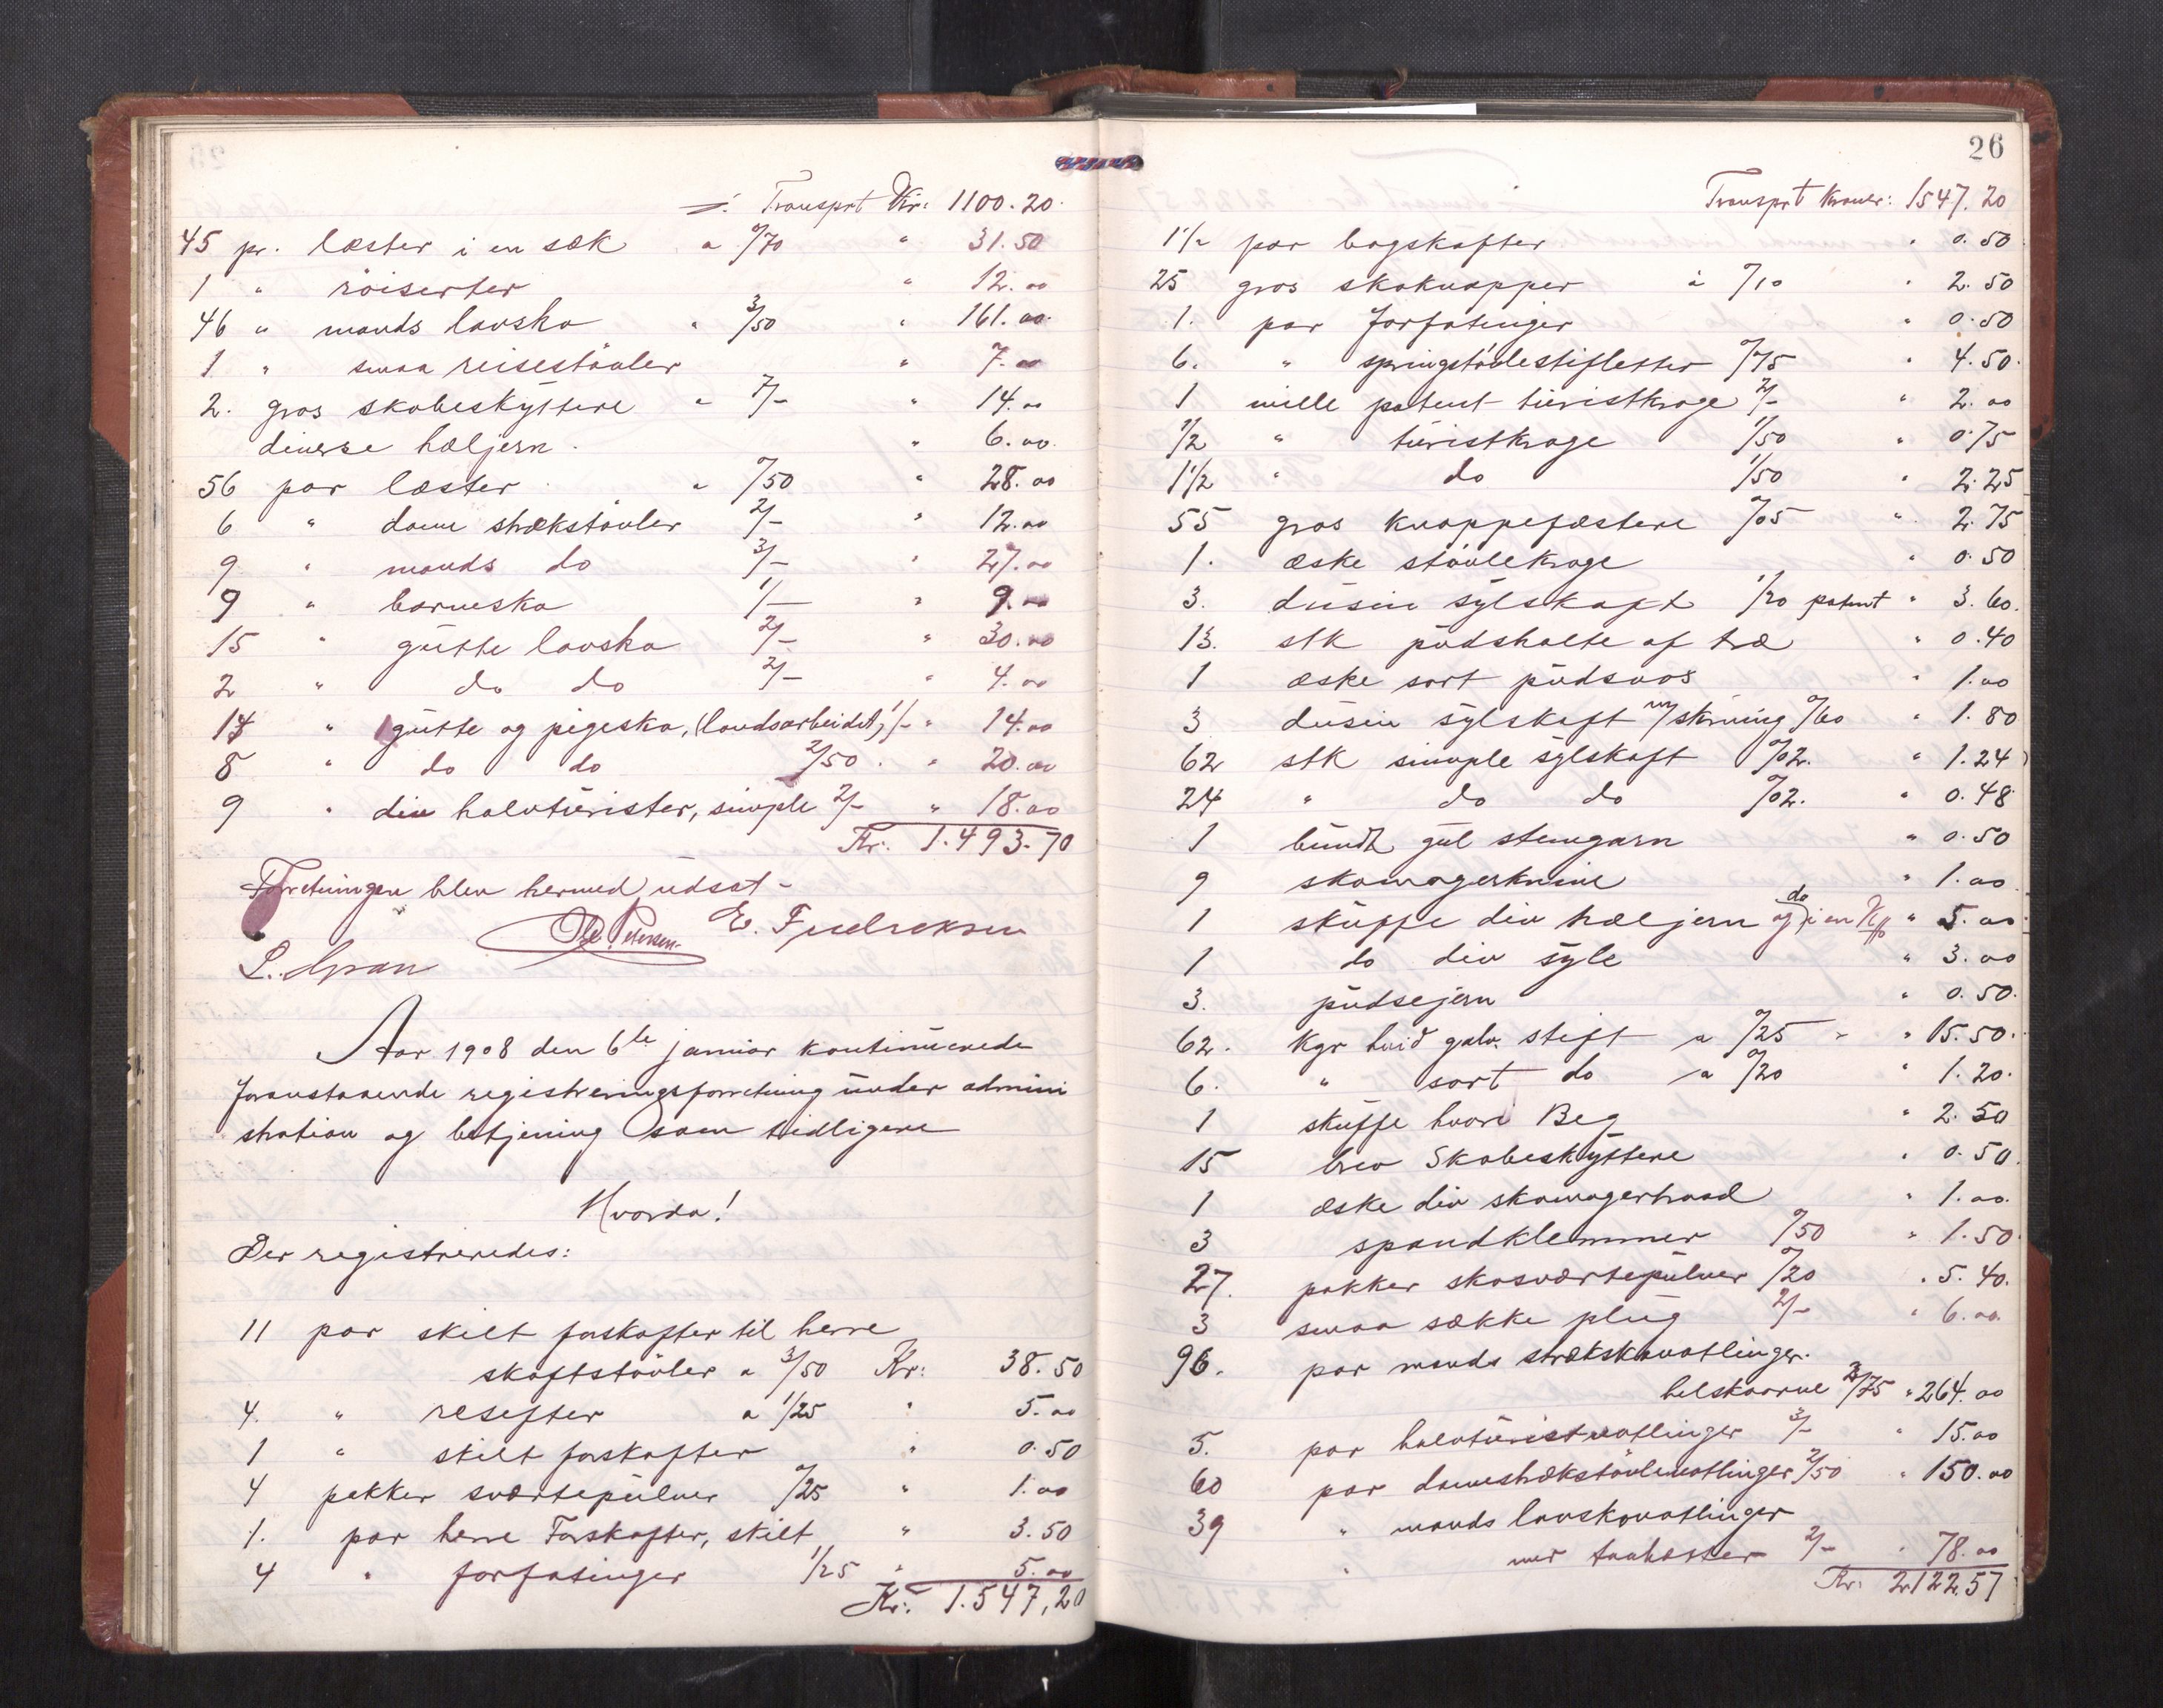 Transprt Kr: 1100.20
45 pr. læster i en sæk a 0/70 " 31.50
1 " röiserter " 12.00
46 " mands lavsko " 3/50 " 161.00
1 " smaa reisestövler " 7.00
2. gros skobeskyttere " 7/- " 14.00
diverse hæljern. " 6.00
56 par læster " 0/50 " 28.00
6 " dame strækstövler 2/- " 12.00
9 " mands do 3/- " 27.00
9 " barnesko 1/- " 9.00
15 " gutte lavsko 2/- " 30.00
2 " do do 2/- " 4.00
14 " gutte og pigesko, (landsarbeidet) 1/- " 14.00
8 " do do 2/50. " 20.00
9 " div halvturister, simple 2/- " 18.00
Kr. 1.493.70
Forretningen blev hermed udsat -
Ole Petersen. E. Fredreksen
L. Gran
Aar 1908 den 6te januar kontinuerede
foranstaaende registreringsforretning under admini
stration og betjening som tidligere
Hvorda!
Der registreredes:
11 par skilt forskafter til herre
skaftstövler a 3/50 Kr: 38.50
4. " resefter a 1/25 " 5.00
1 " skilt forskafter " 0.50
4 pakker sværtepulver 0/25 " 1.00
1. par herre Forskafter, skilt " 3.50
4 " forfatinger 1/25 " 5.00
Kr: 1.547,20
26
Transprt Kroner: 1547.20
1 1/2 par bagskafter " 0.50
25 gros skoknapper à 0/10 " 2.50
1. par forfatinger " 0.50
6. " springstövlestifletter 0/75 " 4.50.
1 mille patent turistkroge 2/- " 2.00
1/2 " turistkroge 1/50 " 0.75
1 1/2 " do 1/50 " 2.25
55 gros knappefæstere 0/05 " 2.75
1. æske stövlekroge " 0.50
3. dusin sylskaft 1/20 patent " 3.60.
13. stk pudsholte af træ " 0.40
1 æske sort pudsvox " 1.00
3 dusin sylskaft m/ skruing 0/60 " 1.80
62 stk simple sylskaft 0/02. " 1.24
24 " do do 0/02. " 0.48
1 bundt gul stengarn " 0.50
9 skomagerknive " 1.00
1 skuffe div hæljern og do i en " 5.00
1 do div syle " 3.00
3. pudsejern " 0.50.
62. Kgr hvid galv. stift a 0/25 " 15.50.
6. " sort do a 0/20 " 1.20.
1 skuffe hvori Beg " 2.50
15 brev Skobeskyttere " 0.50.
1 æske div skomagertraad " 1.00.
3 spandklemmer 0/50 " 1.50.
27. pakker skosværtepulver 0/20 " 5.40.
3 smaa sække plug 2/- " 6.00.
96. par mands strækskovatlinger.
helskaarne 2/75 " 264.00
5. par halvturistvatlinger 3/- " 15.00
60 par damestrækstövlevatlinger 2/50 " 150.00
39 " mands lavskovatlinger
" mer taahætter 2/- " 78.00
Kr: 2122.57